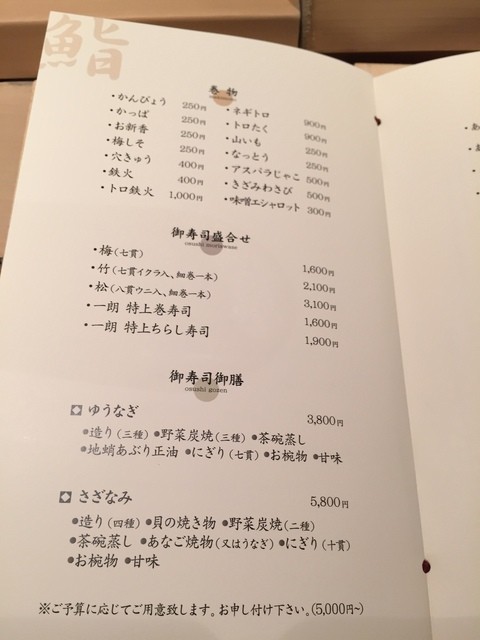 鮨
巻物
・かんぴょう 250円
・かっぱ 250円
・お新香 250円
・梅しそ 250円
・穴きゅう 400円
・鉄火 400円
・トロ鉄火 1,000円
・ネギトロ 900円
・トロたく 900円
・山いも 250円
・なっとう 250円
・アスパラじゃこ 500円
・きざみわさび 500円
・味噌エシャロット 300円
御寿司盛合せ
osushi moriawase
・梅(七貫) 1,600円
・竹(七貫イクラ入、細巻一本) 2,100円
・松(八貫ウニ入、細巻一本) 3,100円
・一朗 特上巻寿司 1,600円
・一朗 特上ちらし寿司 1,900円
御寿司御膳
osushi gozen
ゆうなぎ 3,800円
●造り(三種) ●野菜炭焼(三種) ●茶碗蒸し
●地蛸あぶり正油 ●にぎり(七貫) ●お椀物 ●甘味
さざなみ 5,800円
●造り(四種) ●貝の焼き物 ●野菜炭焼(二種)
●茶碗蒸し ●あなご焼物(又はうなぎ) ●にぎり(十貫)
●お椀物 ●甘味
※ご予算に応じてご用意致します。お申し付け下さい。(5,000円~)